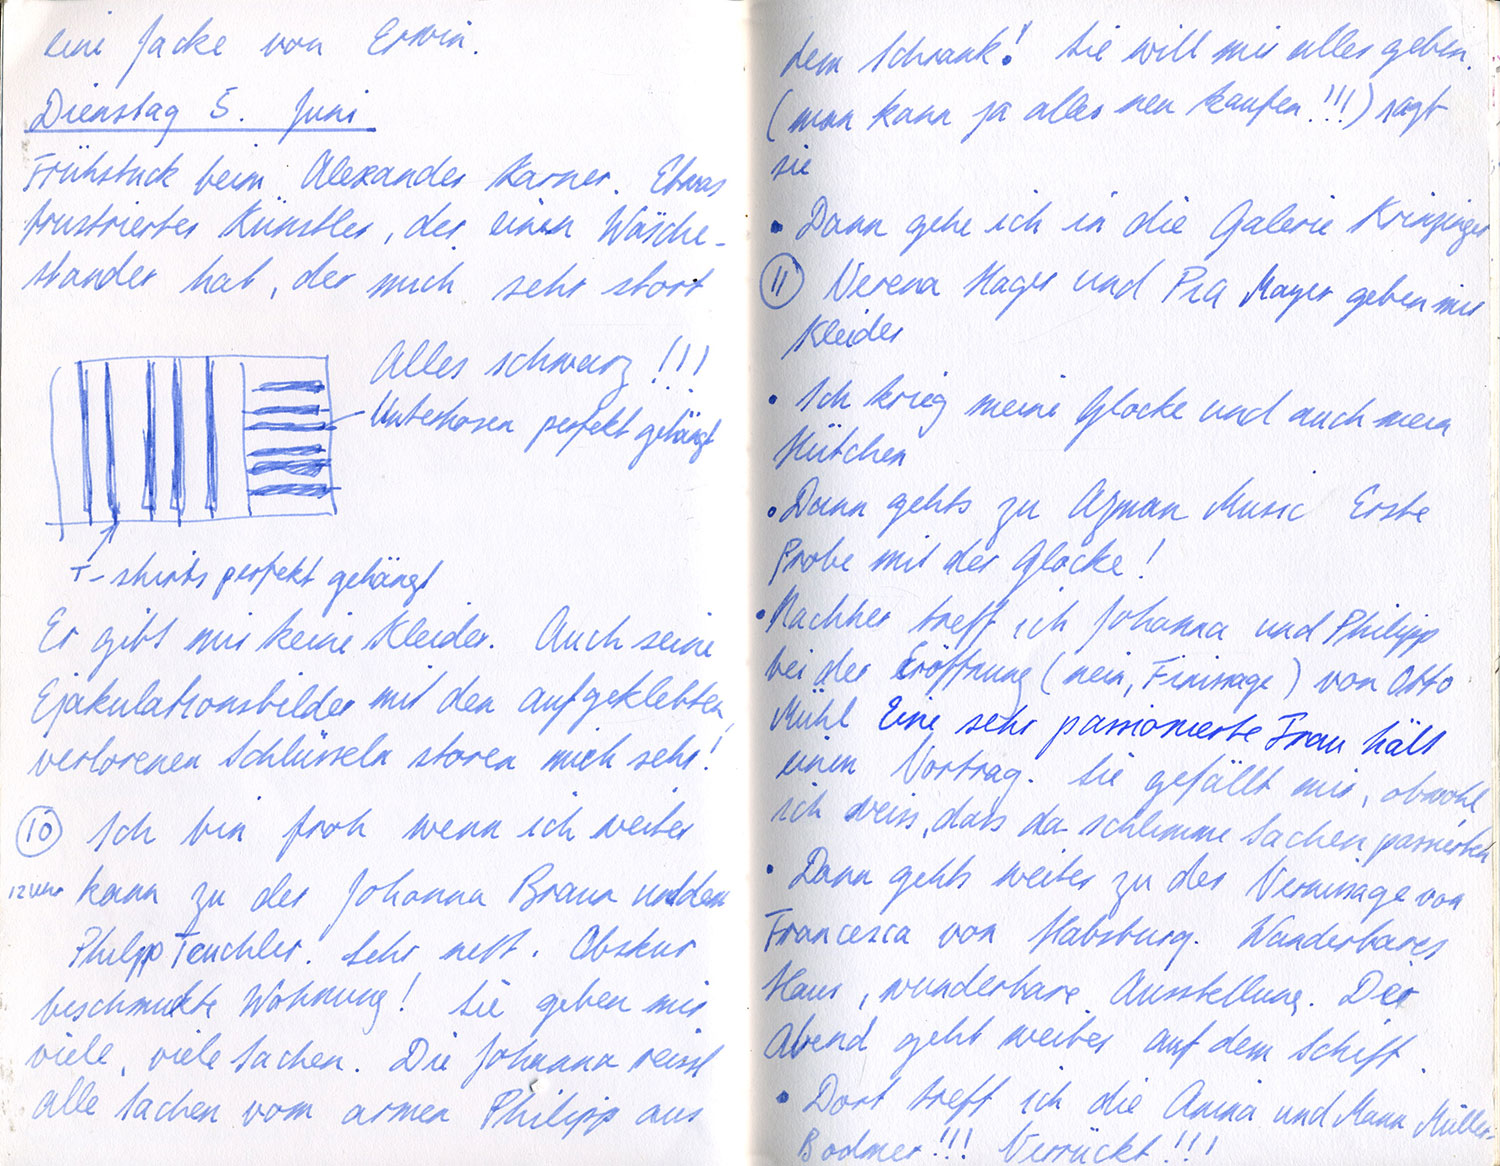 eine Jacke von Erwin.
Dienstag 5. Juni
Frühstück beim Alexander Karner. Etwas
frustrierter Künstler, der einen Wäsche-
ständer hat, der mich sehr stört
Alles schwarz !!!
Unterhosen perfekt gehängt
T-shirts perfekt gehängt
Er gibt mir keine Kleider. Auch seine
Ejakulationsbilder mit den aufgeklebten,
verlorenen Schlüsseln stören mich sehr!
10 Ich bin froh wenn ich weiter
12 Uhr kann zu der Johanna Braun und dem
Philipp Teuchler. Sehr nett. Obskur
beschmukte Wohnung! Sie geben mir
viele, viele Sachen. Die Johanna reisst
alle Sachen vom armen Philipp aus
dem Schrank! Sie will mir alles geben.
(man kann ja alles neu kaufen!!!) sagt
sie
• Dann gehe ich in die Galerie Krinzinger
11 Verena Hager und Pia Mayer geben mir
Kleider
• Ich krieg meine Glocke und auch mein
Hütchen
• Dann gehts zu Agman Music Erste
Probe mit der Glocke!
• Nachher treff ich Johanna und Philipp
bei der Eröffnung (nein, Finissage) von Otto
Mühl Eine sehr passionierte Frau hält
einen Vortrag. Sie gefällt mir, obwohl
ich weiss, dass da schlimme Sachen passierten
• Dann gehts weiter zu der Vernisage von
Francesca von Habsburg. Wunderbares
Haus, wunderbare Ausstellung. Der
Abend geht weiter auf dem Schiff.
• Dort treff ich die Anina und Mann Müller-
Bodmer!!! Verrückt!!!